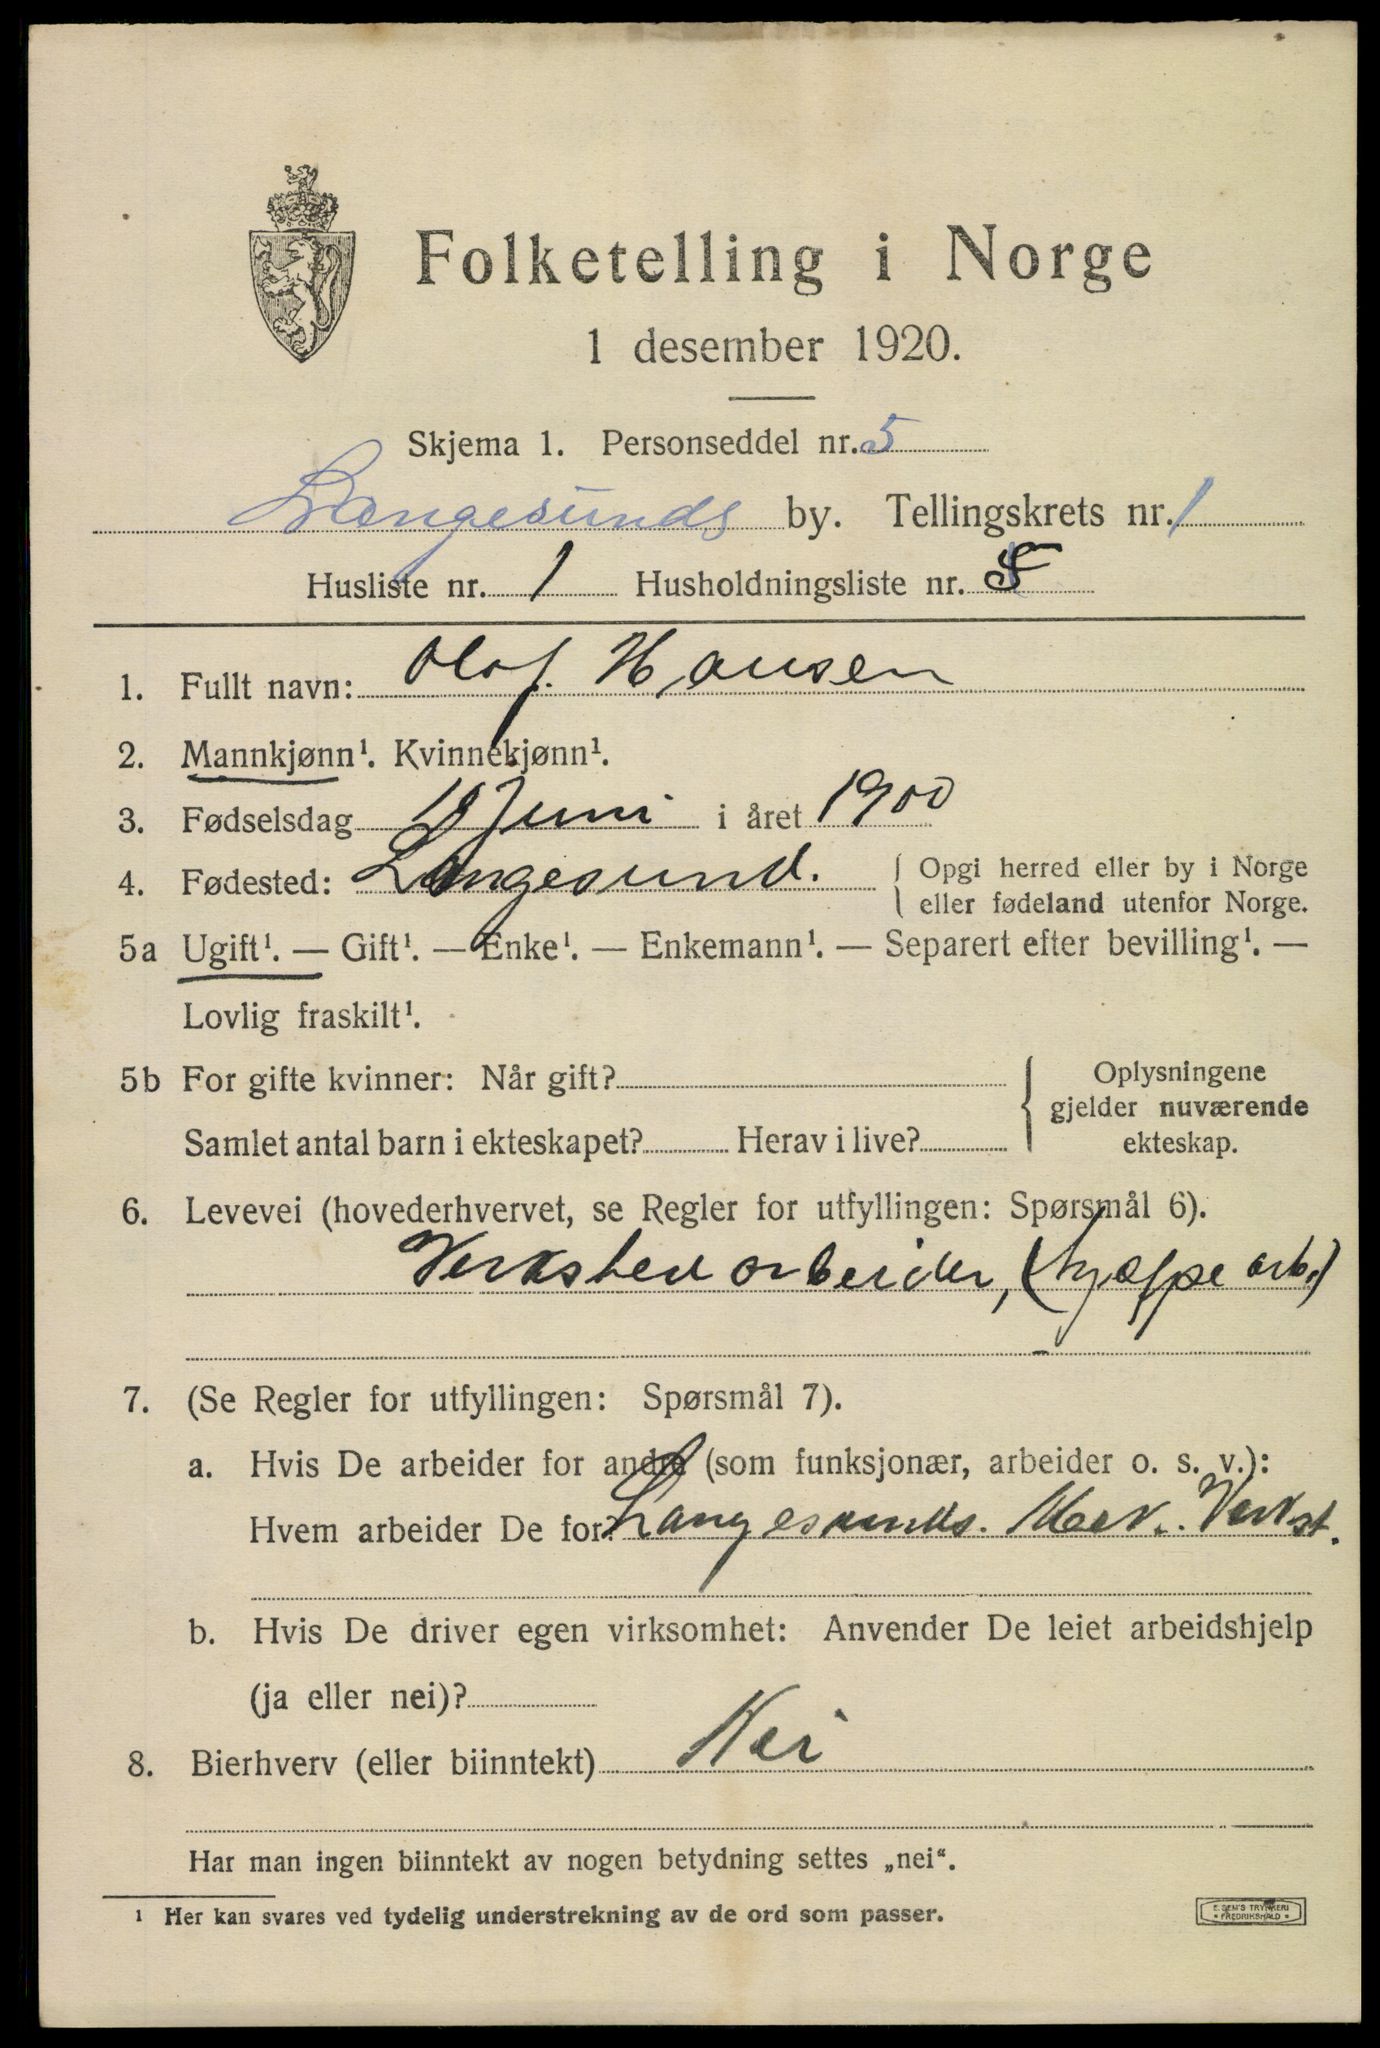 Folketelling i Norge
1 desember 1920.
Skjema 1. Personseddel nr. 5
Langesunds by. Tellingskrets nr. 1
Husliste nr. 1 Husholdningsliste nr.
1. Fullt navn: Olaf. Hansen
2. Mannkjønn¹. Kvinnekjønn¹.
3. Fødselsdag Juni i året 1900
4. Fødested: Langesund. { Opgi herred eller by i Norge
eller fødeland utenfor Norge.
5a Ugift¹. — Gift¹. — Enke¹. — Enkemann¹. — Separert efter bevilling¹. —
Lovlig fraskilt¹.
5b For gifte kvinner: Når gift? { Oplysningene
gjelder nuværende
Samlet antal barn i ekteskapet? Herav i live? ekteskap.
6. Levevei (hovederhvervet, se Regler for utfyllingen: Spørsmål 6).
Verksted arbeider, (hjælpe arb.)
7. (Se Regler for utfyllingen: Spørsmål 7).
a. Hvis De arbeider for andre (som funksjonær, arbeider o. s. v.):
Hvem arbeider De for? Langesunds. Mek. Verkst.
b. Hvis De driver egen virksomhet: Anvender De leiet arbeidshjelp
(ja eller nei)?
8. Bierhverv (eller biinntekt) Nei
Har man ingen biinntekt av nogen betydning settes „nei“.
¹ Her kan svares ved tydelig understrekning av de ord som passer.
E. SEM'S TRYKKERI
• FREDRIKSHALD •